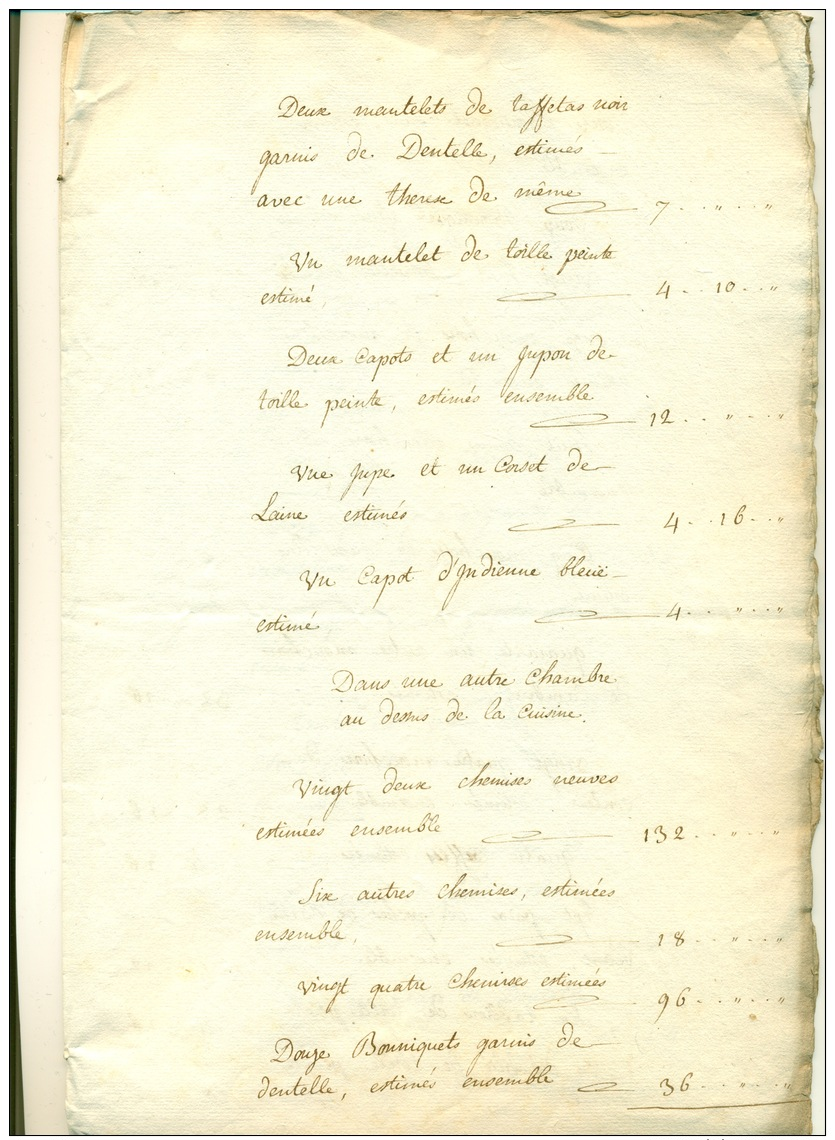 Deux mantelets de taffetas noir
garnis de Dentelle, estimés
avec une therese de même 7 .. " .. "
Un mantelet de toille peinte
estimé, 4 .. 10 .. "
Deux Capots et un Jupon de
toille peinte, estimés ensemble 12 .. " .. "
Une Jupe et un Corset de
Laine estimés 4 .. 16 .. "
Un Capot d'Indienne bleuë
estimé 4 .. " .. "
Dans une autre Chambre
au dessus de la Cuisine.
Vingt deux chemises neuves
estimées ensemble 132 .. " .. "
Six autres chemises, estimées
ensemble, 18 .. " .. "
Vingt quatre Chemises estimées 96 .. " .. "
Douze Bonniquets garnis de
dentelle, estimés ensemble 36 .. " .. "